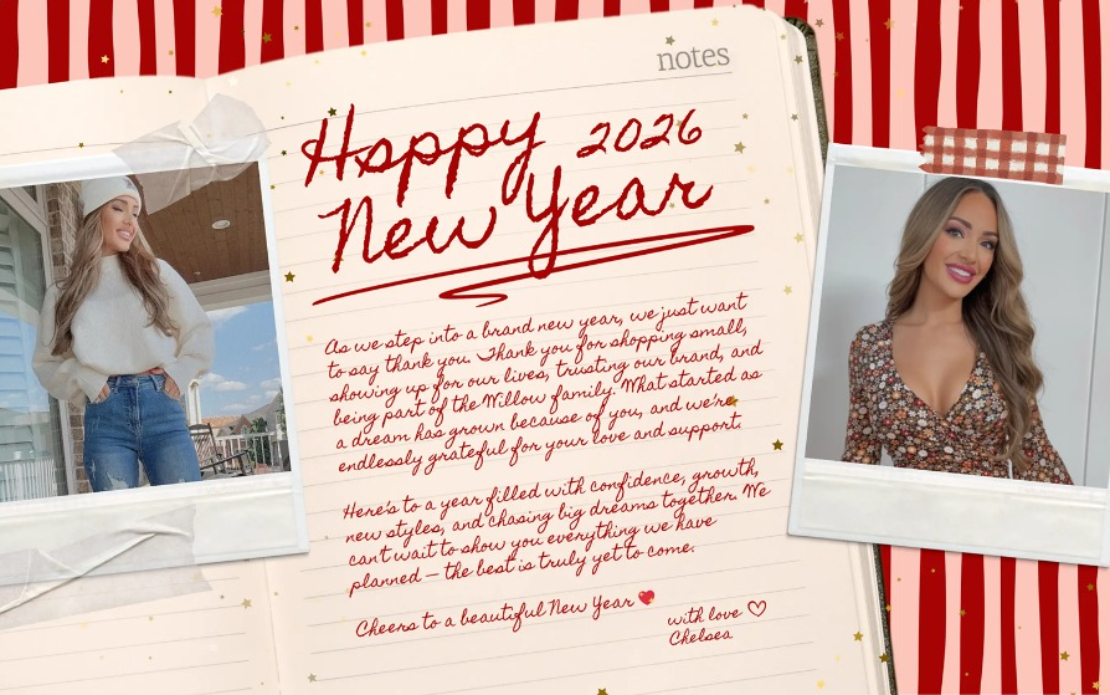 notes
Happy 2026
New Year
As we step into a brand new year, we just want
to say thank you. Thank you for shopping small,
showing up for our lives, trusting our brand, and
being part of the Willow family. What started as
a dream has grown because of you, and we're
endlessly grateful for your love and support.
Here's to a year filled with confidence, growth,
new styles, and chasing big dreams together. We
can't wait to show you everything we have
planned — the best is truly yet to come.
Cheers to a beautiful New Year 💖
with love ♡
Chelsea